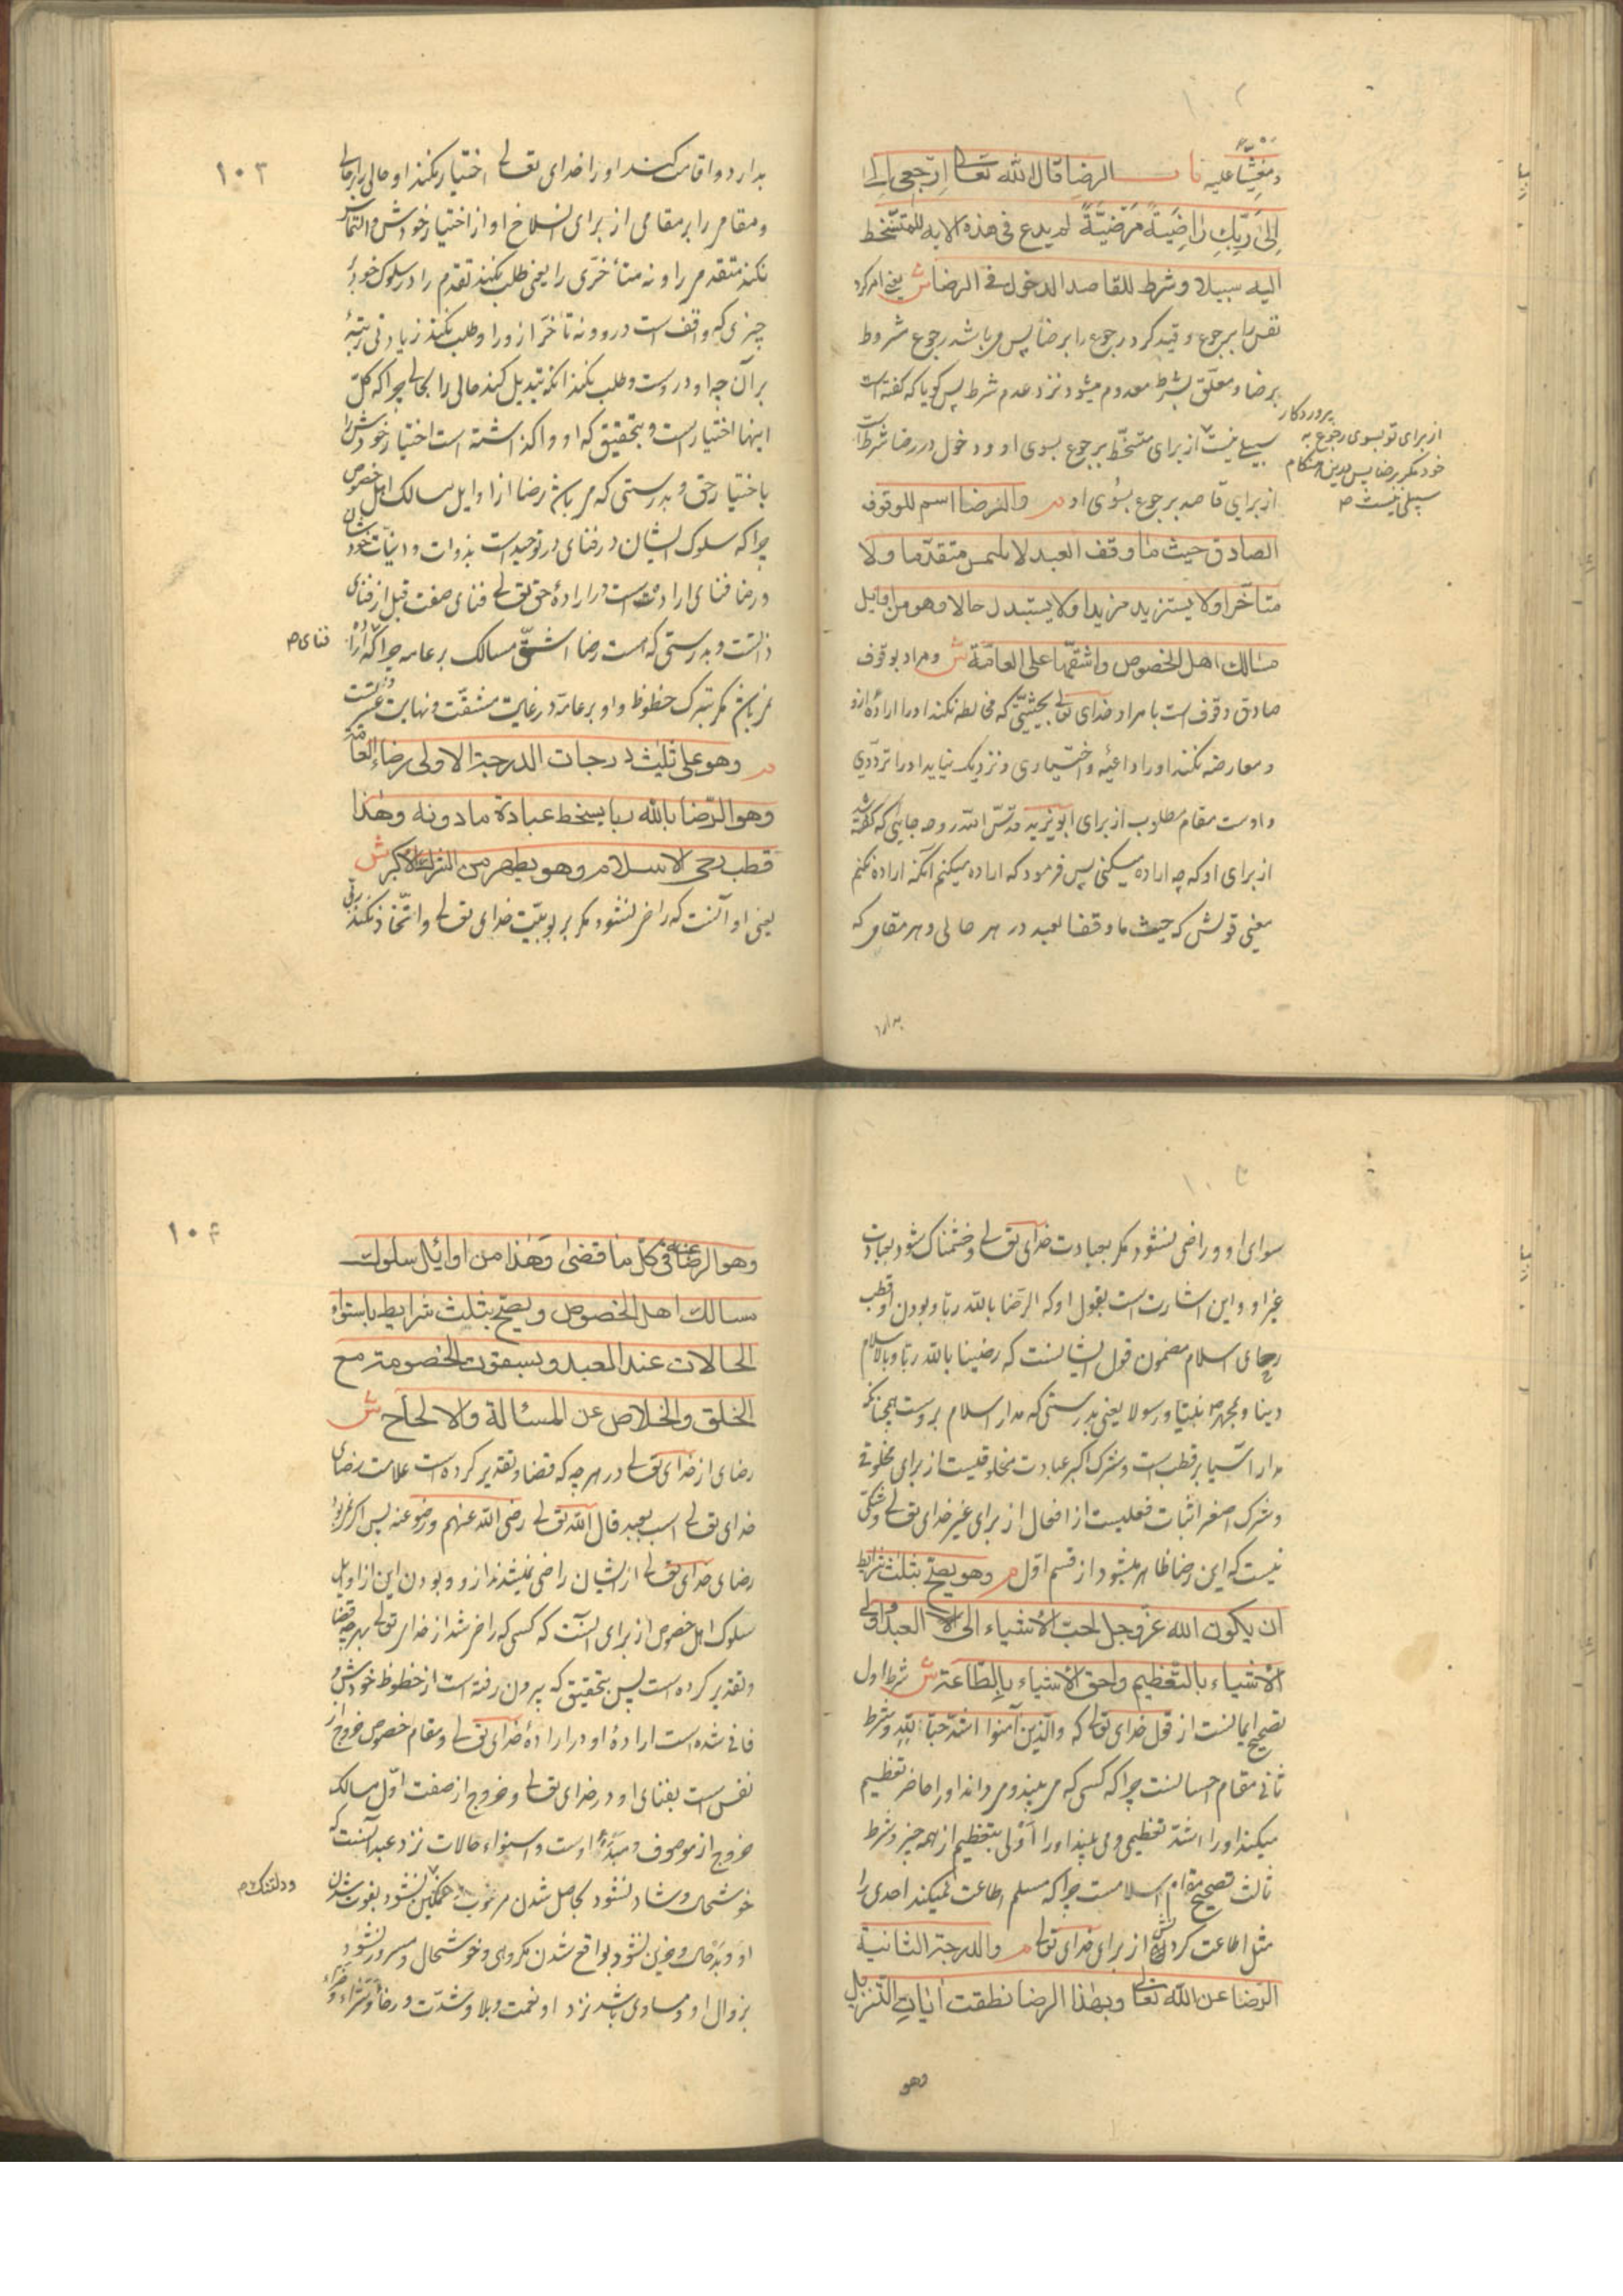 و مغشیا علیه باب الرضا قال الله تعالی ارجعی الی
الی ربک راضیة مرضیة لم یدع فی هذه الایه للمتسخط
الیه سبیلا و شرط للقاصد الدخول فی الرضا ش یعنی امر کرد
نفس را برجوع و قید کرد رجوع را برضا پس می باشد رجوع مشروط
برضا و معلق بشرط معدوم میشود نزد عدم شرط پس کویا که کفته است
سبیلی نیست از برای متسخط برجوع بسوی او و دخول در رضا شرط است
پروردکار
از برای تو بسوی رجوع به
خود مکر برضا پس بدین هنکام
سبیلی نیست م
از برای قاصد برجوع بسوی او م والرضا اسم للوقوف
الصادق حیث ما وقف العبد لا یلتمس متقدما ولا
متاخرا ولا یستزید مزیدا ولا یستبدل حالا وهو من اوایل
مسالک اهل الخصوص واشقها علی العامة ش و مراد بوقوف
صادق وقوف است با مراد خدای تعالی بحیثیتی که مخالطه نکند او را اراده ازو
و معارضه نکند او را داعیه و اختیاری و نزدیک نیاید او را ترددی
و اوست مقام مطلوب از برای ابویزید قدس الله روحه جایی که کفته شد
از برای او که چه اراده میکنی پس فرمود که اراده میکنم آنکه اراده نکنم
معنی قولش که حیث ما وقف العبد در هر حالی و هر مقامی که
بدارد
۱۰۳
بدارد و اقامت کند او را خدای تعالی اختیار نکند او حالی را بر حالی
و مقامی را بر مقامی از برای انسلاخ او از اختیار خودش و التماس
نکند متقدمی را و نه متأخری را یعنی طلب نکند تقدم را در سلوک خود از
چیزی که واقف است درو و نه تأخر از و را و طلب نکند زیادتی رتبهٔ
بر آن چه او دروست و طلب نکند آنکه تبدیل کند حالی را بحالی چرا که کل
اینها اختیار است و بتحقیق که او واکذاشته است اختیار خودش را
باختیار حق و بدرستی که می باشد رضا از اوایل مسالک اهل خصوص
چرا که سلوک ایشان در فنای در توحید است بذوات و انیات خودشان
و رضا فنای ارادتست در ارادهٔ حق تعالی فنای صفت قبل از فنای
ذاتست و بدرستی که هست رضا اشق مسالک بر عامه چرا که او را
فنای م
نمی باشد مکر بترک حظوظ و او بر عامه در غایت مشقت و نهایت عسرتست
م وهو علی ثلث درجات الدرجة الاولی رضاء العامة
وهو الرضا بالله ربا بسخط عبادة ما دونه وهذا
قطب رحی الاسلام وهو یطهر من الشرک الاکبر ش
یعنی او آنست که راضی نشود مکر بربوبیت خدای تعالی و اتخاذ نکند ربی
سوای او و راضی نشود مکر بعبادت خدای تعالی و خشمناک شود بعبادت
غیر او و این اشارت است بقول او که الرضا بالله ربا و بودن او قطب
رحای اسلام مضمون قول ایشانست که رضینا بالله ربا و بالاسلام
دینا و بمحمد ص نبیا و رسولا یعنی بدرستی که مدار اسلام بروست همچنانکه
مدار آسیا بر قطب است و شرک اکبر عبادت مخلوقیست از برای مخلوقی
و شرک اصغر اثبات فعلیست از افعال از برای غیر خدای تعالی و شکی
نیست که این رضا ظاهر میشود از قسم اول م وهو یصح بثلث شرایط
ان یکون الله عز وجل احب الاشیاء الی العبد واولی
الاشیاء بالتعظیم واحق الاشیاء بالطاعة ش شرط اول
تصحیح ایمانست از قول خدای تعالی که والذین آمنوا اشد حبا لله و شرط
ثانی مقام احسانست چرا که کسی که می بیند و می داند او را حاضر تعظیم
میکند او را اشد تعظیمی و می بیند او را اولی بتعظیم از همه چیز و شرط
ثالث تصحیح مقام اسلامست چرا که مسلم اطاعت نمیکند احدی را
مثل اطاعت کردنش از برای خدای تعالی م والدرجة الثانیة
الرضا عن الله تعالی وبهذا الرضا نطقت ایات التنزیل
وهو
۱۰۴
وهو الرضا عنه فی کل ما قضی وهذا من اوایل سلوک
مسالک اهل الخصوص ویصح بثلث شرایط باستواء
الحالات عند العبد وبسقوط الخصومة مع
الخلق والخلاص عن المسئالة والالحاح ش
رضای از خدای تعالی در هر چه که قضا و تقدیر کرده است علامت رضای
خدای تعالی است بعبد قال الله تعالی رضی الله عنهم ورضوا عنه پس اکر نمی بود
رضای خدای تعالی از ایشان راضی نمیشدند ازو و بودن این از اوایل
سلوک اهل خصوص از برای آنست که کسی که راضی شد از خدای تعالی بهر چه قضا
و تقدیر کرده است پس بتحقیق که بیرون رفته است از حظوظ خودش و
فانی شده است ارادهٔ او در ارادهٔ خدای تعالی و مقام خصوص خروج از
نفس است بفنای او در خدای تعالی و خروج از صفت اول مسالک
خروج از موصوف و مبدأ اوست و استواء حالات نزد عبد آنست که
خوشحال و شاد نشود بحاصل شدن مرغوب و غمکین نشود بفوت شدن
و دلتنک م
او و بدحال و حزین نشود بواقع شدن مکروهی و خوشحال و مسرور نشود
بزوال او و مساوی باشد نزد او نعمت و بلا و شدت و رخا و سراء و ضراء